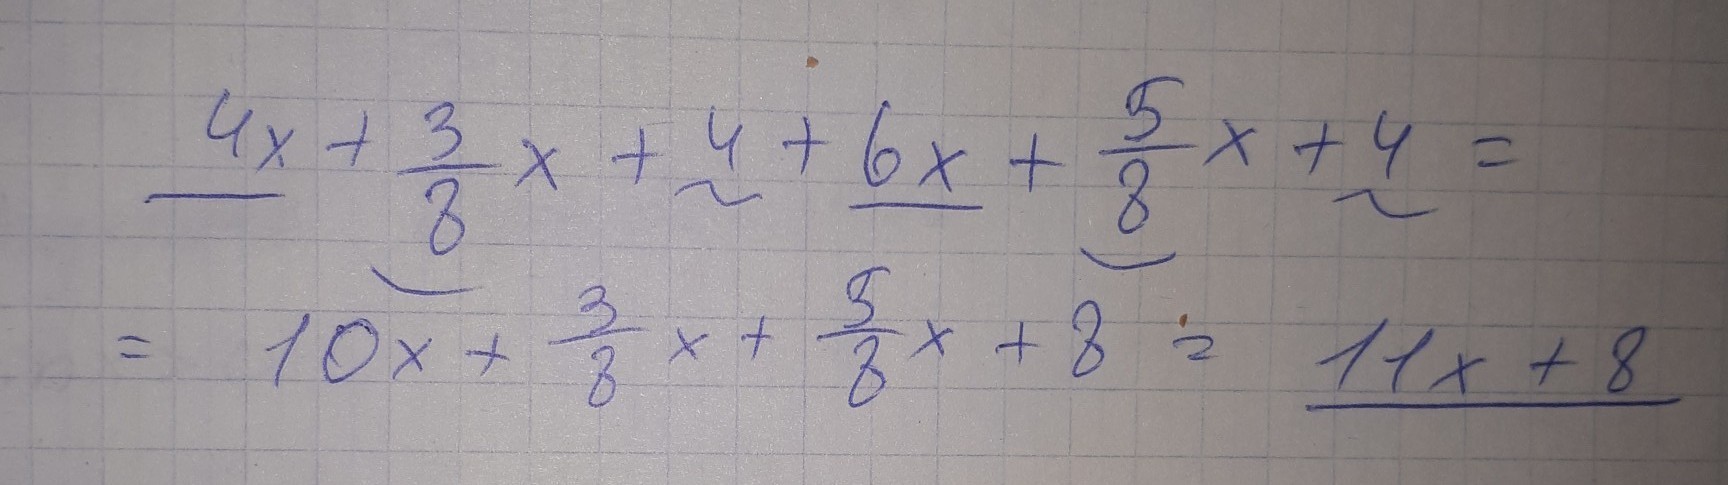 4x + 3/8 x + 4 + 6x + 5/8 x + 4 =
= 10x + 3/8 x + 5/8 x + 8 = 11x + 8